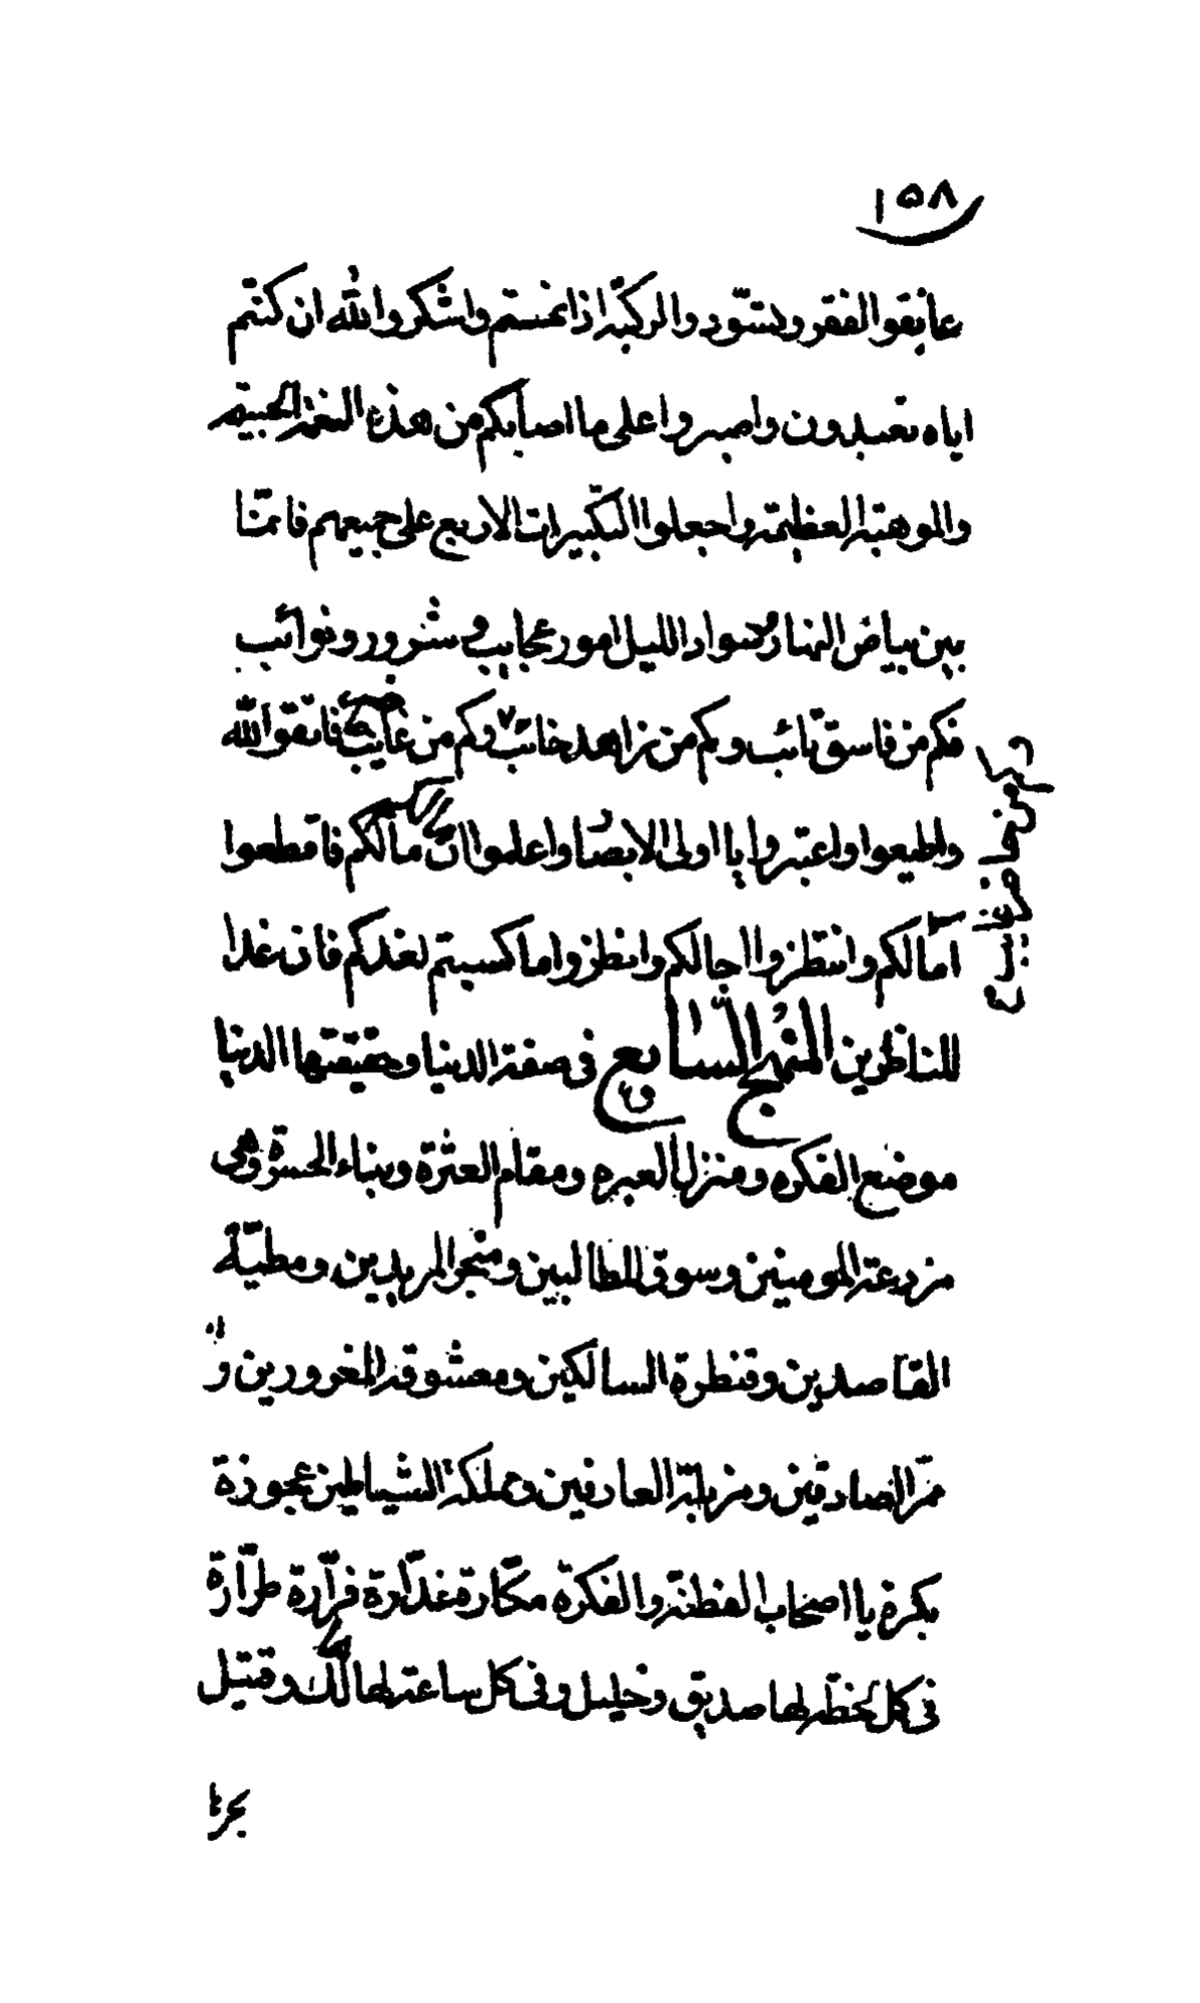 ١٥٨
عانقوا الفقر وتسّودوا الركبة اذا نمستم واشكروا لله ان كنتم
اياه تعبدون واصبروا على ما اصابكم من هذه النعمة
والموهبة العظيمة واجعلوا التكبيرات الاربع على جميعهم فانمّا
بين بياض النهار وسواد الليل امور عجايب و شرور ونوائب
فكم من فاسق تائب وكم من زاهد خائب وكم من غايب فاتقوا الله
واطيعوا واعتبروا يا اولى الابصار واعلموا انّ مآلكم فاقطعوا
امالكم وانتظروا اجالكم وانظروا ما كسبتم لغدكم فان غدا
للناظرين المنهج السابع فى صفة الدنيا وحقيقتها الدنيا
موضع الفكره ومنزل العبره ومقام العثرة وبناء الحسرة وهى
مزرعة المومنين وسوق الطالبين ومتجر المريدين ومطيّة
القاصدين وقنطرة السالكين ومعشوقة المغرورين و
ممرّ الصادقين ومزبلة العارفين ومملكة الشياطين عجوزة
بكرة يا اصحاب الفطنة والفكرة مكّارة غدّارة فرّارة طرّارة
فى كل لحظة لها صديق وخليل وفى كل ساعة لها هالك وقتيل